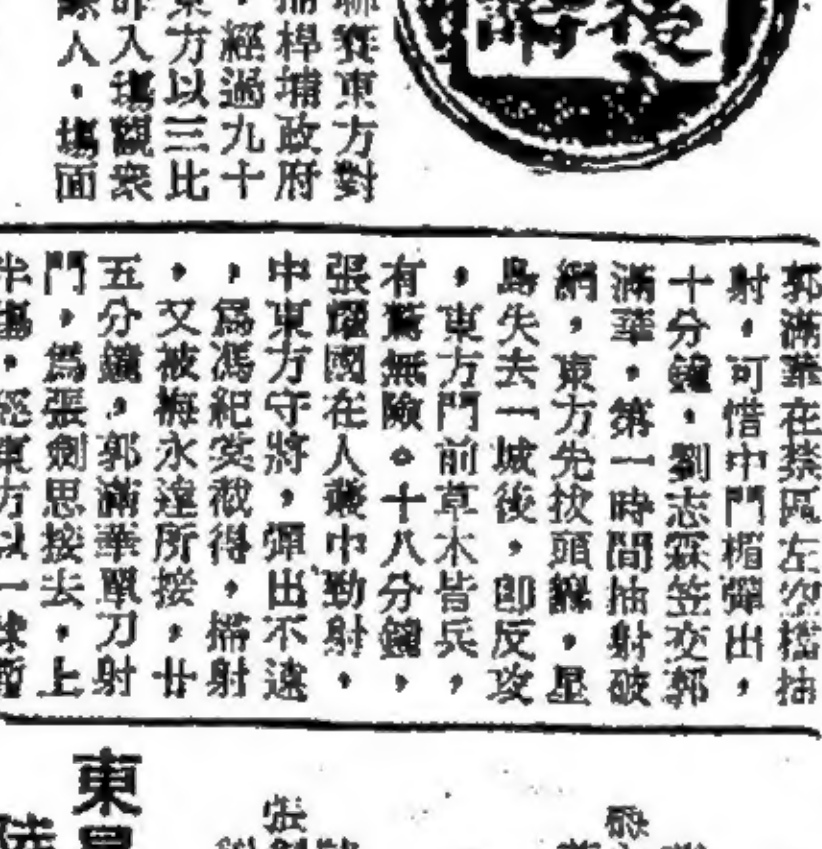 聯賽東方對
掃桿埔政府
，經過九十
東方以三比
昨入塲觀衆
人，塲面
郭滿華在禁區左空檔抽
射，可惜中門楣彈出，
十分鐘，劉志霖笠交郭
滿華，第一時間抽射破
網，東方先拔頭籌，星
島失去一城後，卽反攻
，東方門前草木皆兵，
有驚無險。十八分鐘，
張耀國在人叢中勁射，
中東方守將，彈出不遠
，爲馮紀棠截得，掃射
，又被梅永達所接，廿
五分鐘，郭滿華單刀射
門，爲張劍思接去，上
半塲，經東方以一球暫
東
張